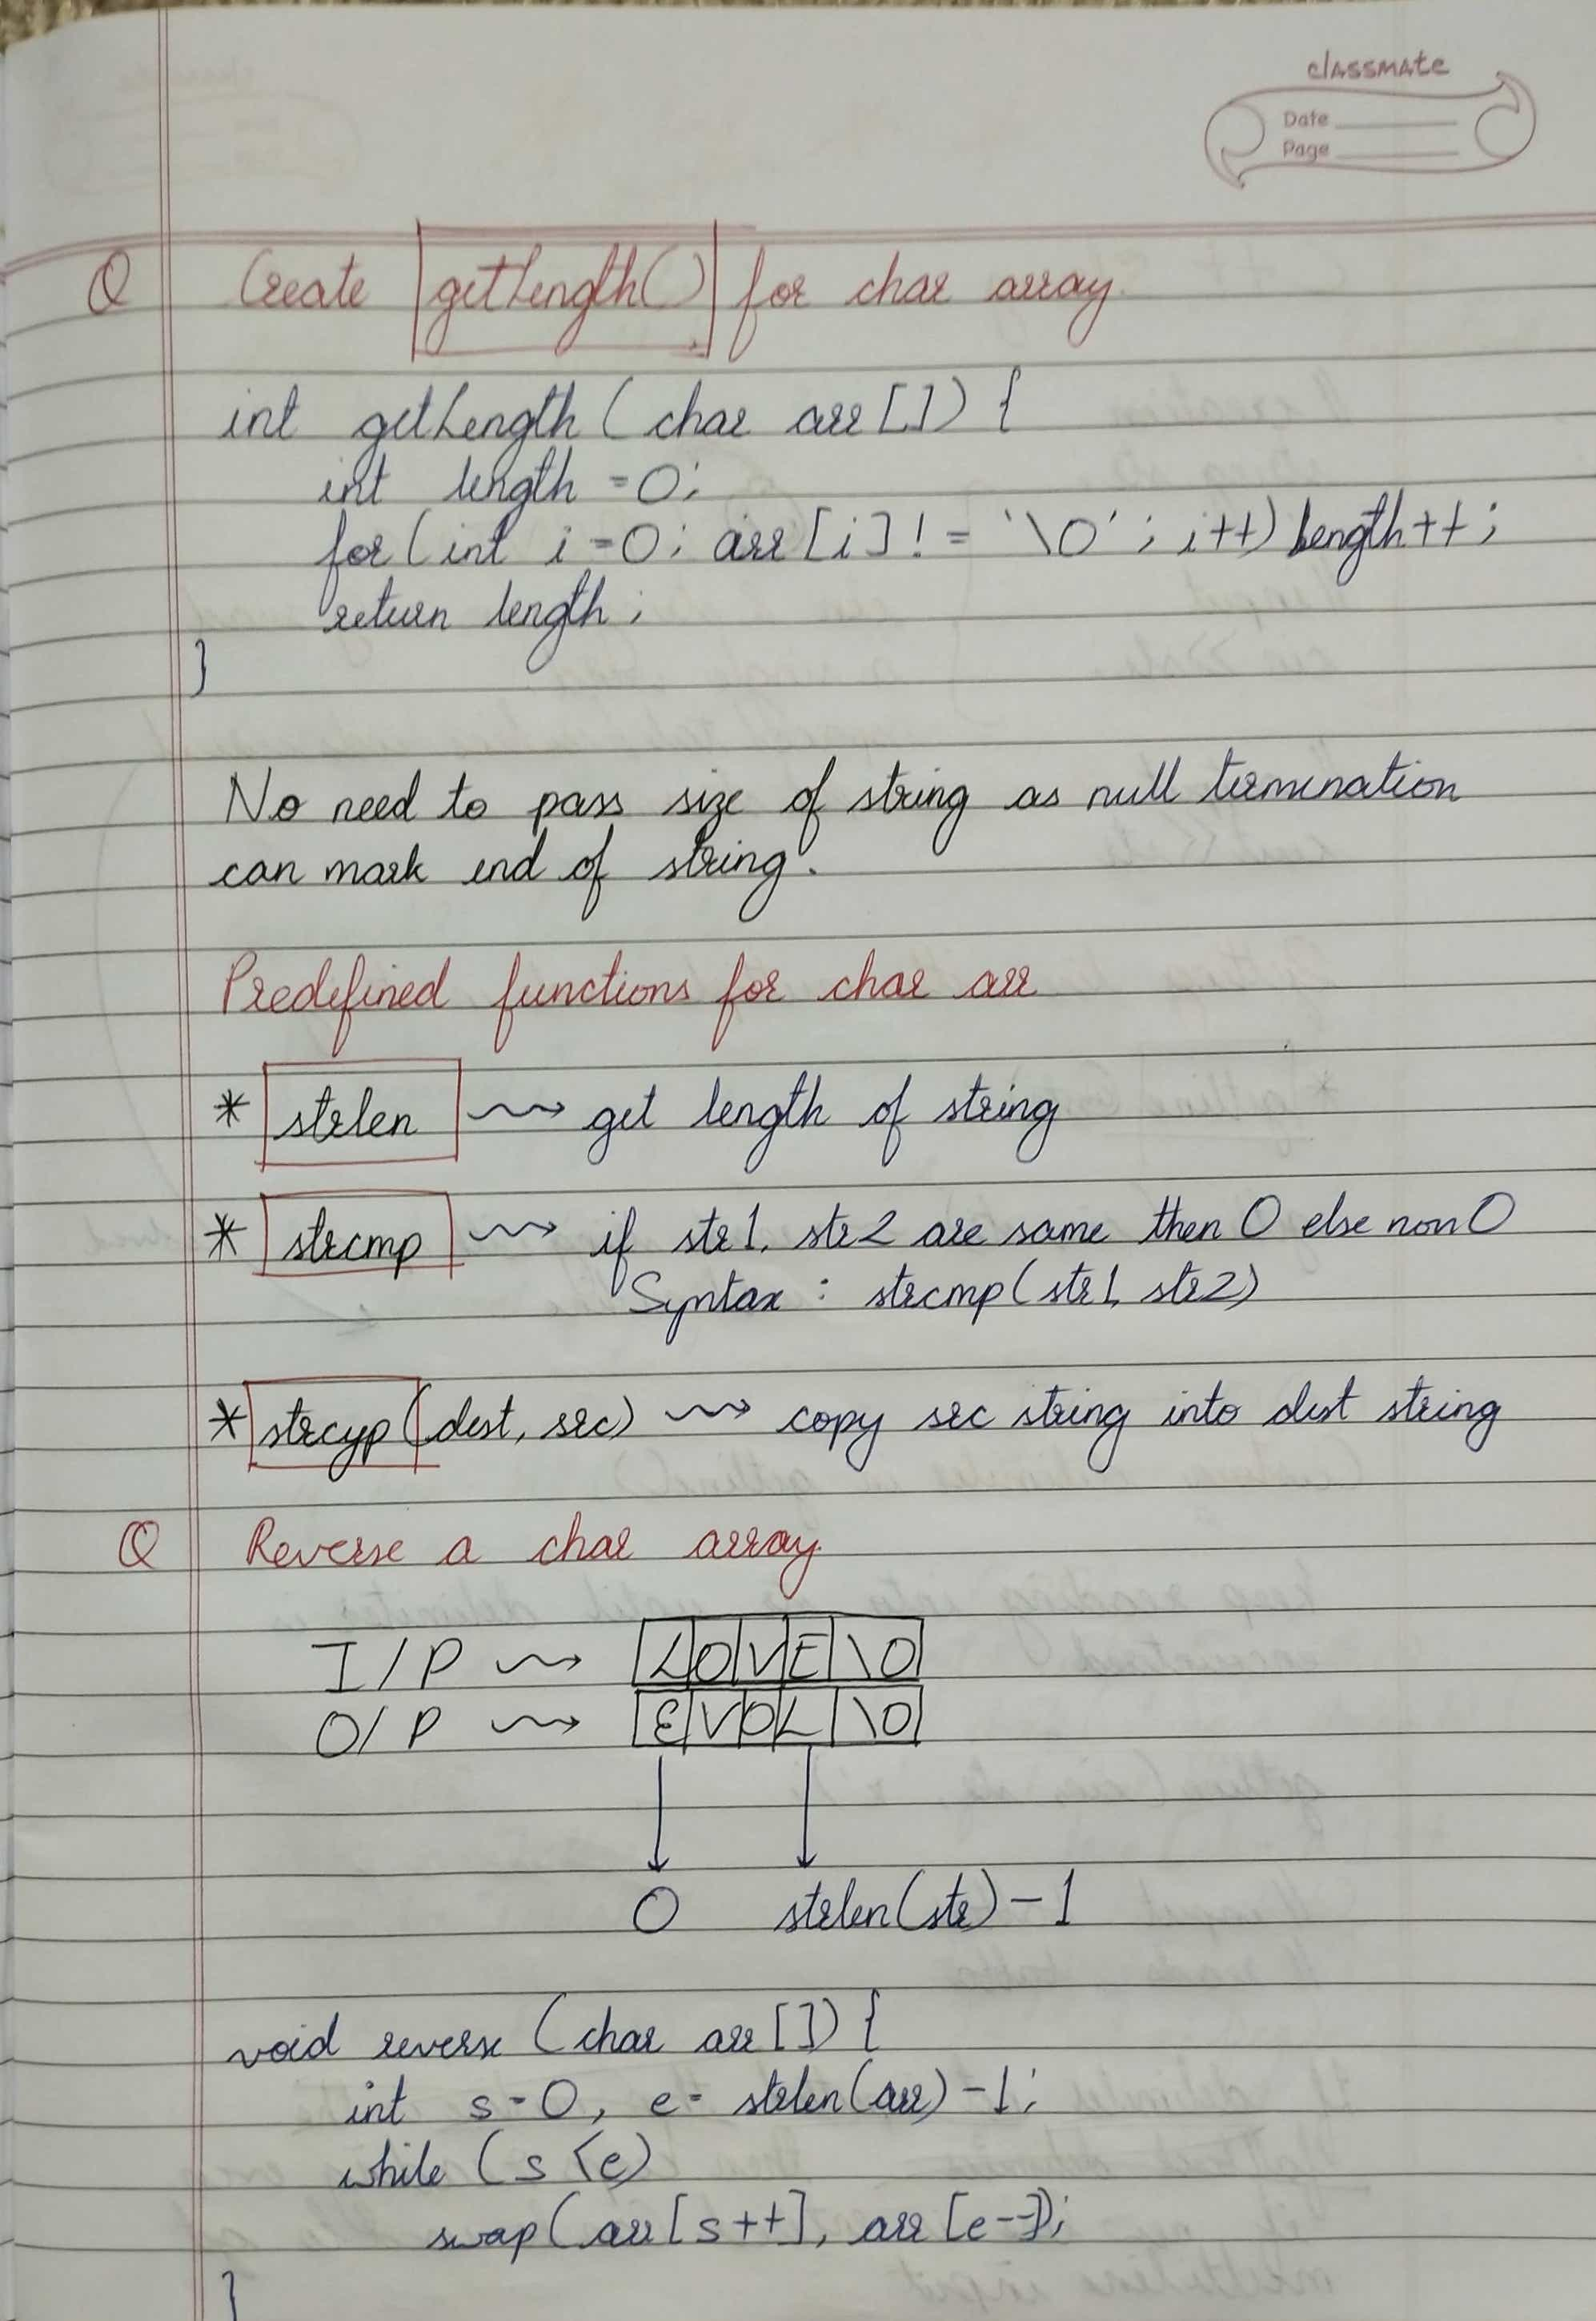 classmate
Date
Page
Q Create getLength() for char array.
int getLength (char arr[]) {
int length = 0;
for(int i=0; arr[i] != '\0'; i++) length++;
return length;
}
No need to pass size of string as null termination
can mark end of string.
Predefined functions for char arr
* strlen ⇝ get length of string
* strcmp ⇝ if str1, str2 are same then 0 else non 0
Syntax : strcmp(str1, str2)
* strcyp(dest, src) ⇝ copy src string into dest string
Q Reverse a char array.
I/P ⇝ L O V E \0
O/P ⇝ E V O L \0
0 strlen(str) - 1
void reverse (char arr[]) {
int s=0, e= strlen(arr) -1;
while (s<e)
swap(arr[s++], arr[e--]);
}